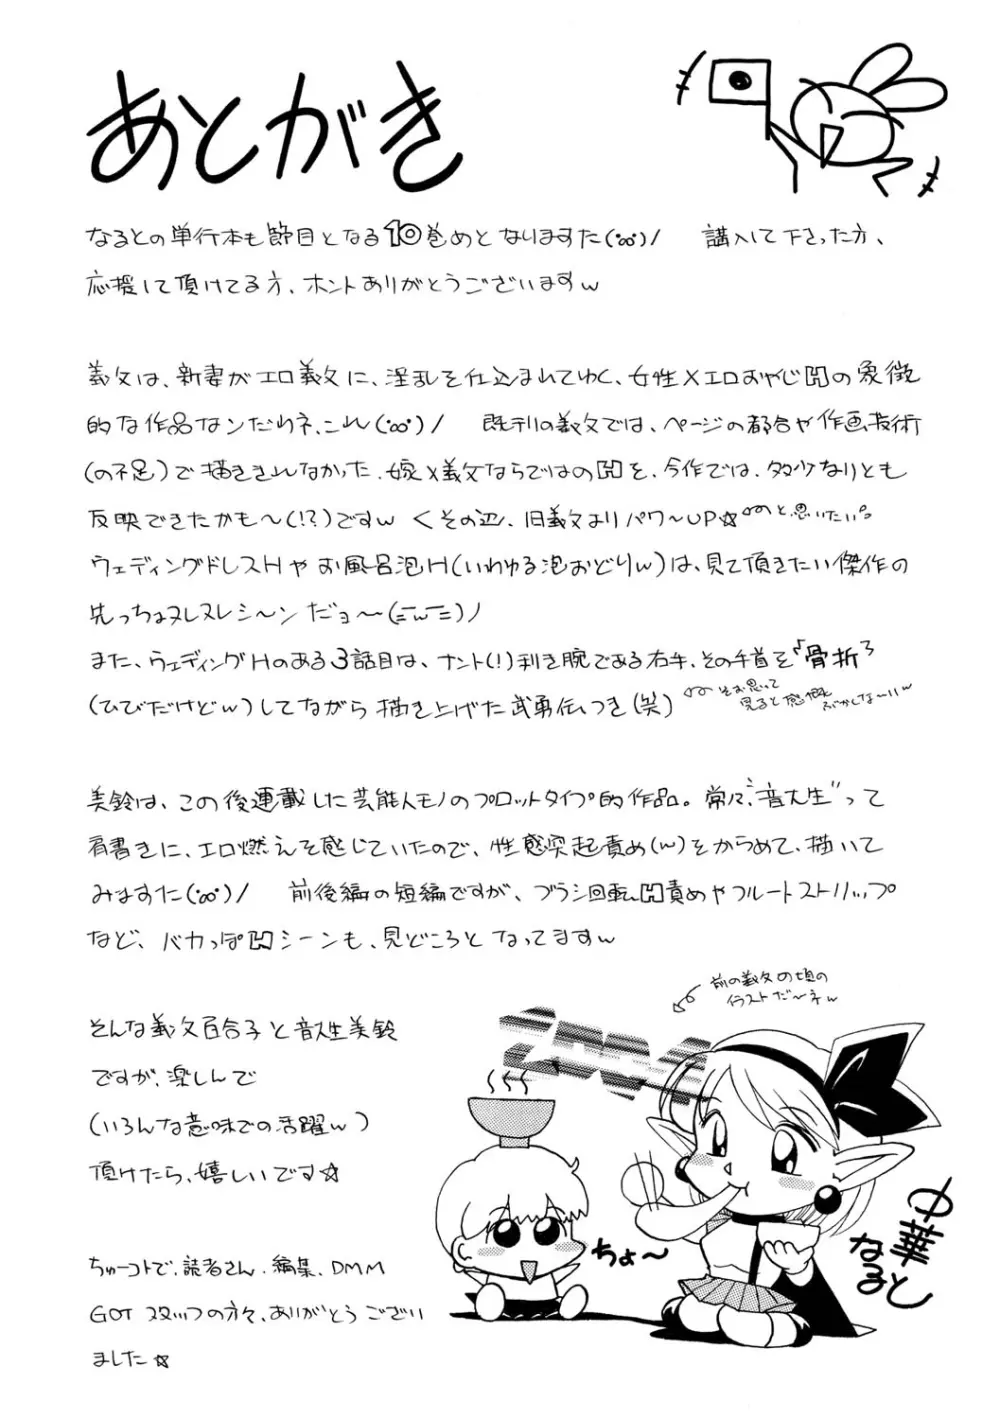 あとがき
なるとの単行本も節目となる10巻めとなりますた(･ω･)/ 講入して下さった方、
応援して頂けてる方、ホントありがとうございますw
義父は、新妻がエロ義父に、淫乱を仕込まれてゆく、女性×エロおやじHの象徴
的な作品なンだわネ、これ(･ω･)/ 既刊の義父では、ページの都合や作画技術
(の不足)で描ききれなかった、嫁×義父ならではのHを、今作では、多少なりとも
反映できたかも〜(!?)ですw くその辺、旧義父よりパワ〜UP☆ と、思いたい。
ウェディングドレスHやお風呂泡H(いわゆる泡おどりw)は、見て頂きたい傑作の
先っちょヌレヌレシ〜ンだョ〜(=ω=)ノ
また、ウェディングHのある3話目は、ナント(!)利き腕である右手、その手首を「骨折」
(ひびだけどw)してながら描き上げた武勇伝つき(笑) そお思って
見ると感慨
ぶかしな〜いw
美鈴は、この後連載した芸能人モノのプロットタイプ的作品。常々、"音大生"って
肩書きに、エロ燃えを感じていたので、性感突起責め(w)をからめて、描いて
みますた(･ω･)/ 前後編の短編ですが、ブラシ回転H責めやフルートストリップ
など、バカっぽHシーンも、見どころとなってますw
そんな義父百合子と音大生美鈴
ですが、楽しんで
(いろんな意味での活躍w)
頂けたら、嬉しいです☆
ちゅーコトで、読者さん、編集、DMM
GOTスタッフの方々、ありがとうござい
ました☆
前の義父の頃の
イラストだ〜ネw
2004
ちょ〜
中華なると